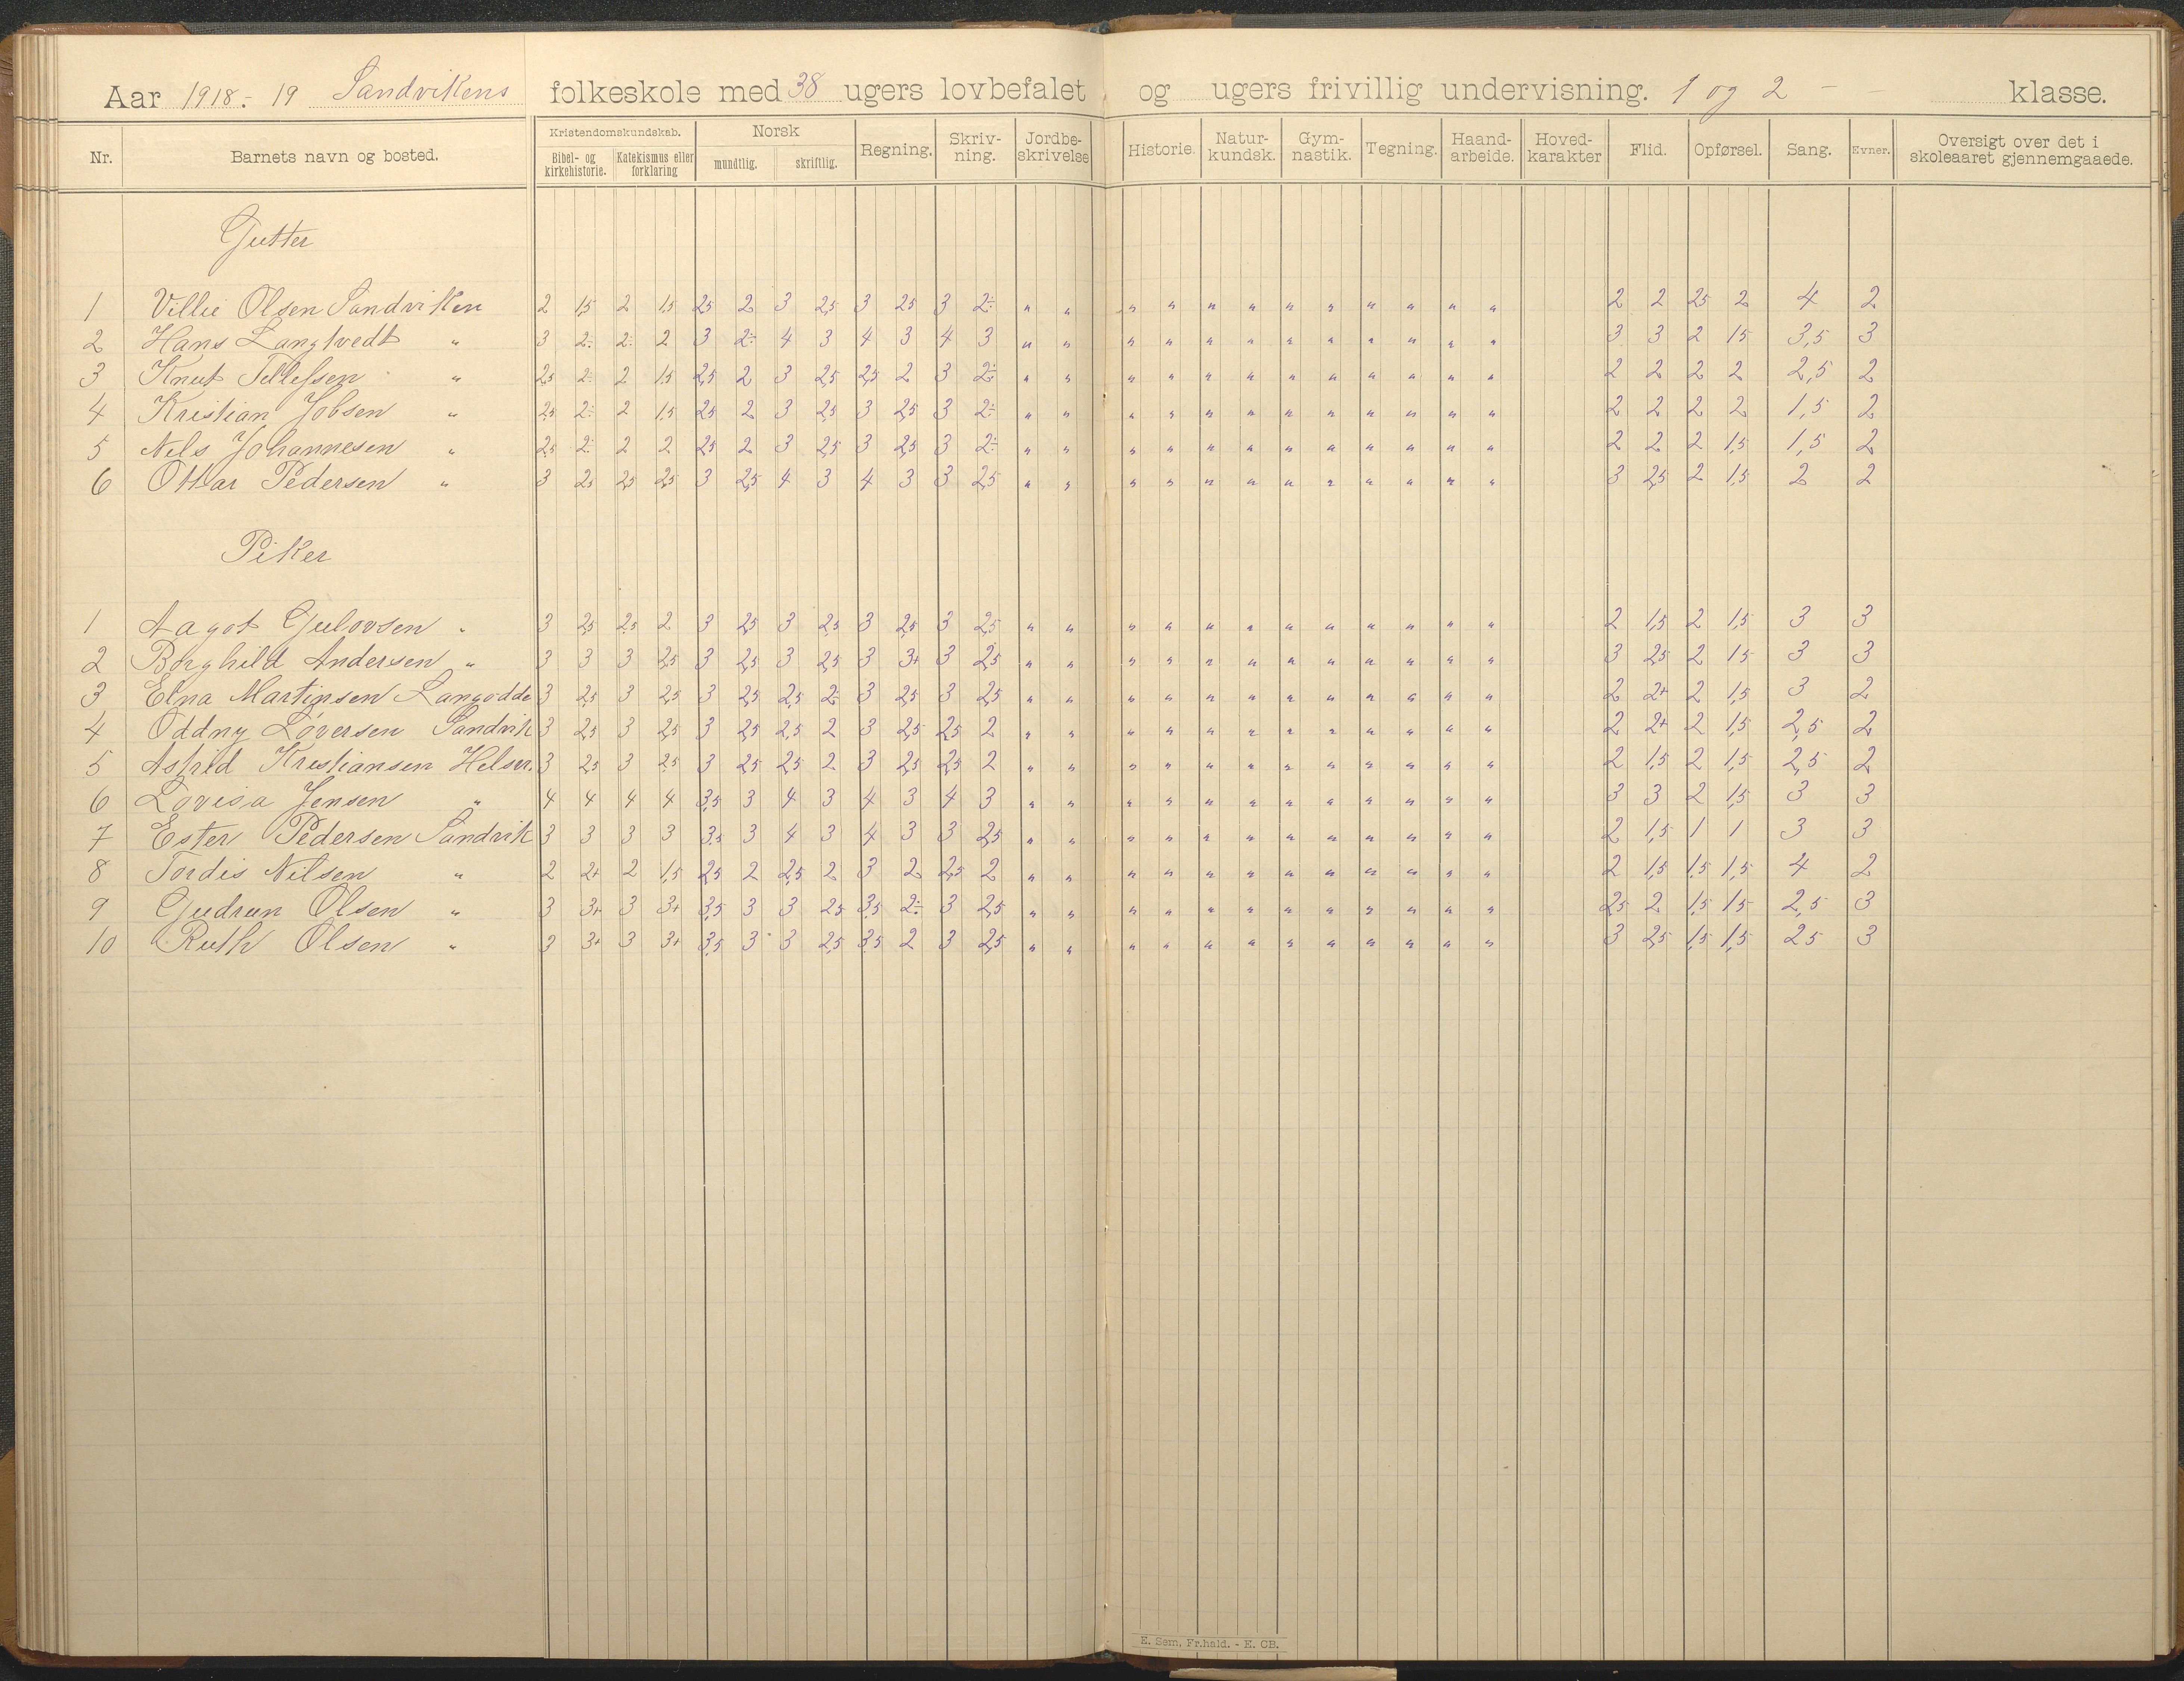 Aar 1918-19 Sandvikens folkeskole med 38 ugers lovbefalet og ugers frivillig undervisning. 1 og 2 - klasse.
Nr. Barnets navn og bosted. Kristendomskundskab. Bibel- og kirkehistorie. Katekismus eller forklaring Norsk mundtlig. skriftlig. Regning. Skriv-ning. Jordbe-skrivelse Historie. Natur-kundsk. Gym-nastik. Tegning. Haand-arbeide. Hoved-karakter Flid. Opførsel. Sang. Evner. Oversigt over det i skoleaaret gjennemgaaede.
Gutter
1 Villie Olsen Sandviken 2 1,5 2 1,5 2,5 2 3 2,5 3 2,5 3 2÷ " " " " " " " " " " " " 2 2 2,5 2 4 2
2 Hans Langtvedt " 3 2÷ 2÷ 2 3 2÷ 4 3 4 3 4 3 " " " " " " " " " " " " 3 3 2 1,5 3,5 3
3 Knut Tellefsen " 2,5 2÷ 2 1,5 2,5 2 3 2,5 2,5 2 3 2÷ " " " " " " " " " " " " 2 2 2 2 2,5 2
4 Kristian Jobsen " 2,5 2÷ 2 1,5 2,5 2 3 2,5 3 2,5 3 2÷ " " " " " " " " " " " " 2 2 2 2 1,5 2
5 Nils Johannesen " 2,5 2÷ 2 2 2,5 2 3 2,5 3 2,5 3 2÷ " " " " " " " " " " " " 2 2 2 1,5 1,5 2
6 Ottar Pedersen " 3 2,5 2,5 2,5 3 2,5 4 3 4 3 3 2,5 " " " " " " " " " " " " 3 2,5 2 1,5 2 2
Piker
1 Aagot Gulovsen " 3 2,5 2,5 2 3 2,5 3 2,5 3 2,5 3 2,5 " " " " " " " " " " " " 2 1,5 2 1,5 3 3
2 Borghild Andersen " 3 3 3 2,5 3 2,5 3 2,5 3 3+ 3 2,5 " " " " " " " " " " " " 3 2,5 2 1,5 3 3
3 Elna Martinsen Langodde 3 2,5 3 2,5 3 2,5 2,5 2÷ 3 2,5 3 2,5 " " " " " " " " " " " " 2 2+ 2 1,5 3 2
4 Oddny Løversen Sandvik 3 2,5 3 2,5 3 2,5 2,5 2 3 2,5 2,5 2 " " " " " " " " " " " " 2 2+ 2 1,5 2,5 2
5 Astrid Kristiansen Helser. 3 2,5 3 2,5 3 2,5 2,5 2 3 2,5 2,5 2 " " " " " " " " " " " " 2 1,5 2 1,5 2,5 2
6 Lovisa Jensen " 4 4 4 4 3,5 3 4 3 4 3 4 3 " " " " " " " " " " " " 3 3 2 1,5 3 3
7 Ester Pedersen Sandvik 3 3 3 3 3,5 3 4 3 4 3 3 2,5 " " " " " " " " " " " " 2 1,5 1 1 3 3
8 Tordis Nilsen " 2 2+ 2 1,5 2,5 2 2,5 2 3 2 2,5 2 " " " " " " " " " " " " 2 1,5 1,5 1,5 4 2
9 Gudrun Olsen " 3 3+ 3 3+ 3,5 3 3 2,5 3,5 2÷ 3 2,5 " " " " " " " " " " " " 2,5 2 1,5 1,5 2,5 3
10 Ruth Olsen " 3 3+ 3 3+ 3,5 3 3 2,5 3,5 2 3 2,5 " " " " " " " " " " " " 3 2,5 1,5 1,5 2,5 3
E. Sem, Fr.hald. - E. CB.